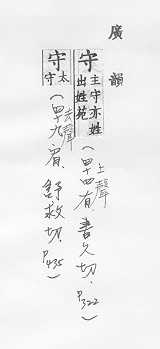 廣韻
守 主守亦姓
出姓苑
(上聲
四十四有 書久切. P322)
守 太
守
(去聲
四十九宥 舒救切. P435)